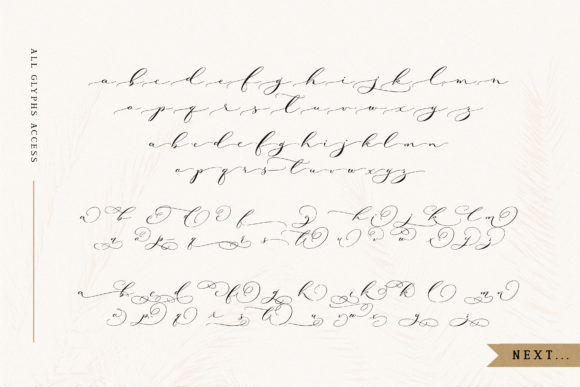 ALL GLYPHS ACCESS
a b c d e f g h i j k l m n
o p q r s t u v w x y z
a b c d e f g h i j k l m n
o p q r s t u v w x y z
a b c d e f g h i j k l m
n o p q r s t u v w x y z
a b c d e f g h i j k l m n
o p q r s t u v w x y z
NEXT...